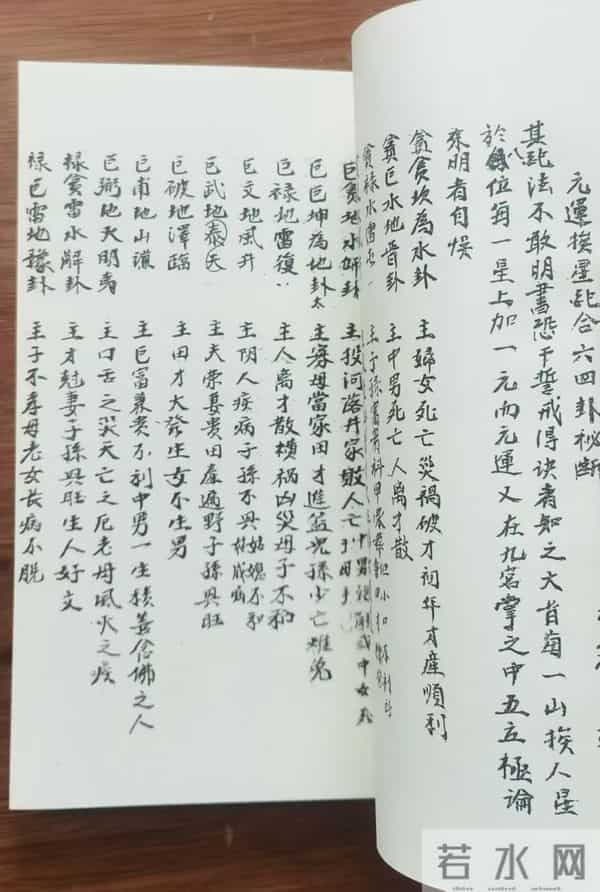 元運挨星配合六四卦秘斷
其配法不敢明書恐干誓戒得诀者知之大首萹一山挨人星
於八位每一星上加一元而元運又在九宮掌之中五立極論
來明者自悞
貪貪坎為水卦 主婦女死亡災禍破才初年才産順利
貪巨水地晋卦 主中男死亡人离才散
貪禄水雷 主子孫富貴科甲
巨貪地水師卦 主投河落井家敗人亡
巨巨坤為地卦 主寡母當家田才進益兒孫少亡难免
巨禄地雷復 主人离才散横祸凶災母子不和
巨文地風升 主阴人疾病子孫不興姑媳不和
巨武地天泰 主夫荣妻贵田産遍野子孫興旺
巨破地澤臨 主田才大發生女不生男
巨甫地山谦 主巨富慕贵不利中男一生積善念佛之人
巨弼地火明夷 主口舌之災夭亡之厄老母風火之疾
禄貪雷水解卦 主才尅妻子孫興旺生人好文
禄巨雷地豫卦 主子不孝母老女長病不脱
若水网